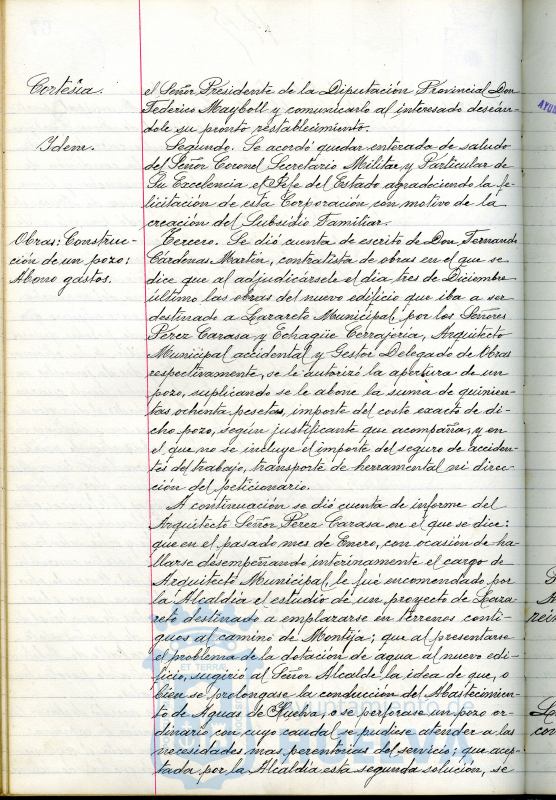 Cortesía.
el Señor Presidente de la Diputación Provincial Don
Federico Mayboll y comunicarlo al interesado deseán-
dole su pronto restablecimiento.
Idem.
Segundo. Se acordó quedar enterada de saludo
del Señor Coronel Secretario Militar y Particular de
Su Excelencia el Jefe del Estado agradeciendo la fe-
licitación de esta Corporación con motivo de la
creación del Subsidio Familiar.
Obras: Construc-
ción de un pozo:
Abono gastos.
Tercero. Se dió cuenta de escrito de Don Fernando
Cárdenas Martín, contratista de obras en el que se
dice que al adjudicársele el día tres de Diciembre
último las obras del nuevo edificio que iba a ser
destinado a Lazareto Municipal, por los Señores
Pérez Carasa y Echagüe Cerrajería, Arquitecto
Municipal accidental y Gestor Delegado de Obras
respectivamente, se le autorizó la apertura de un
pozo, suplicando se le abone la suma de quinien-
tas ochenta pesetas, importe del costo exacto de di-
cho pozo, según justificante que acompaña, y en
el que no se incluye el importe del seguro de acciden-
tes del trabajo, transporte de herramental ni direc-
ción del peticionario.
A continuación se dió cuenta de informe del
Arquitecto Señor Pérez Carasa en el que se dice:
que en el pasado mes de Enero, con ocasión de ha-
llarse desempeñando interinamente el cargo de
Arquitecto Municipal, le fué encomendado por
la Alcaldía el estudio de un proyecto de Laza-
reto destinado a emplazarse en terrenos conti-
guos al camino de Montija; que al presentarse
el problema de la dotación de agua al nuevo edi-
ficio, sugirió al Señor Alcalde la idea de que, o
bien se prolongase la conducción del Abastecimien-
to de Aguas de Huelva, o se perforase un pozo or-
dinario con cuyo caudal se pudiese atender a las
necesidades mas perentorias del servicio; que acep-
tada por la Alcaldía esta segunda solución, se
ET TERRÆ
Ayuntamiento de